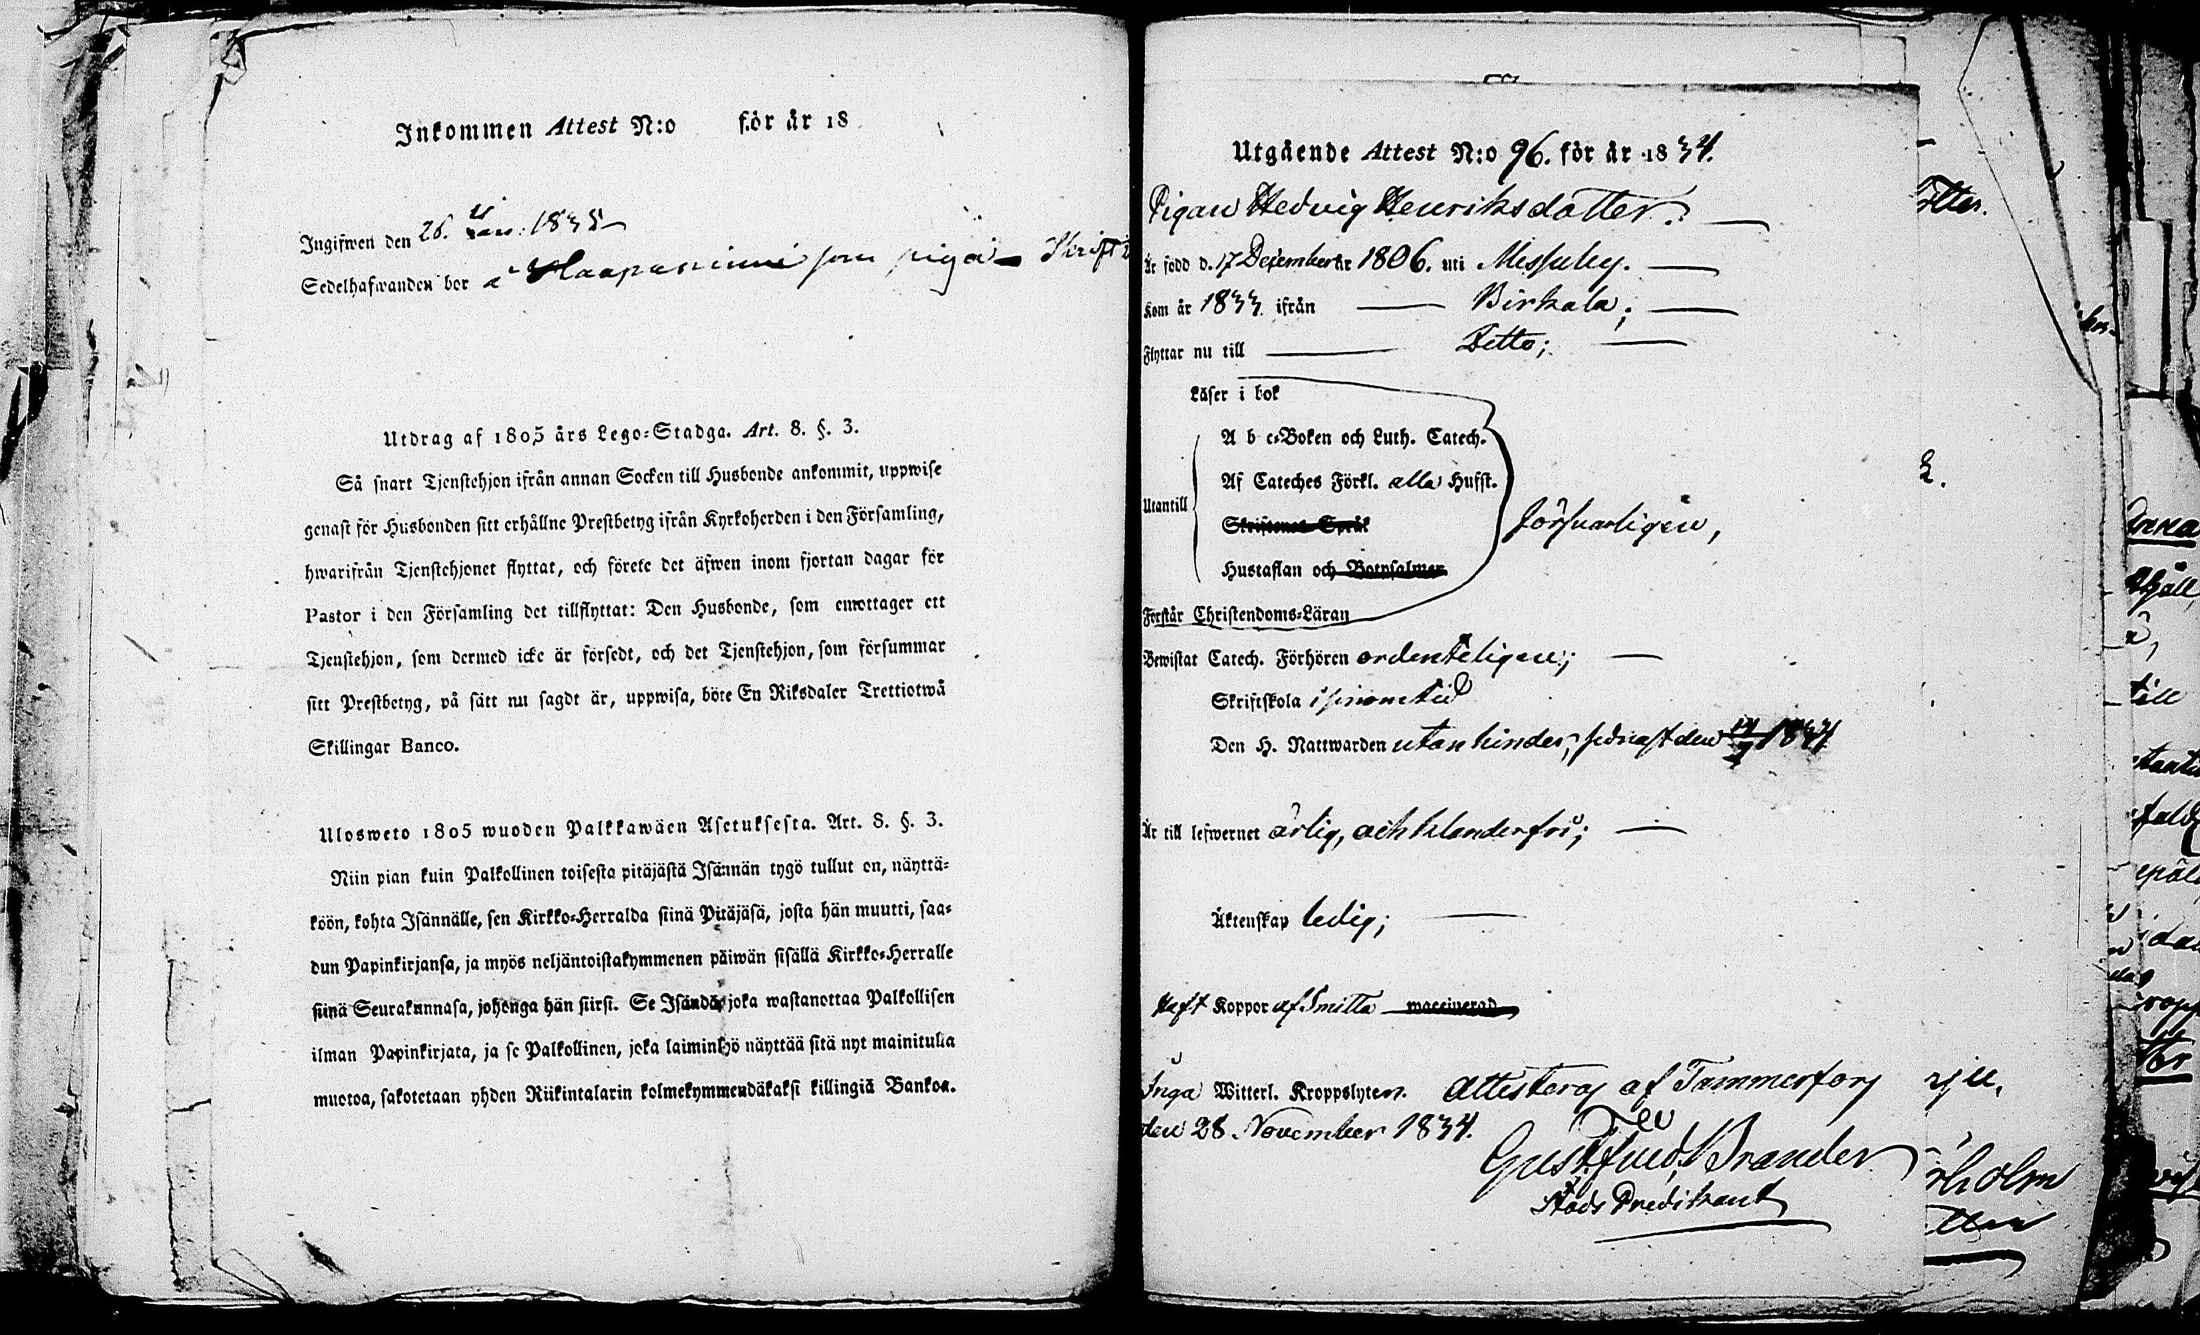 Inkommen Attest N:o för år 18
Ingifwen den 26. 1835
Sedelhafwanden bor å Haapaniemi som piga
Utdrag af 1805 års Lego-Stadga. Art. 8. §. 3.
Så snart Tjenstehjon ifrån annan Socken till Husbonde ankommit, uppwise
genast för Husbonden sitt erhållne Prestbetyg ifrån Kyrkoherden i den Församling,
hwarifrån Tjenstehjonet flyttat, och förete det äfwen inom fjortan dagar för
Pastor i den Församling det tillflyttat: Den Husbonde, som emottager ett
Tjenstehjon, som dermed icke är försedt, och det Tjenstehjon, som försummar
sitt Prestbetyg, på sätt nu sagdt är, uppwisa, böte En Riksdaler Trettiotwå
Skillingar Banco.
Ulosweto 1805 wuoden Palkkawäen Asetuksesta. Art. 8. §. 3.
Niin pian kuin Palkollinen toisesta pitäjästä Isännän tygö tullut on, näyttä-
köön, kohta Isännälle, sen Kirkko-Herralda siinä Pitäjäsä, josta hän muutti, saa-
dun Papinkirjansa, ja myös neljäntoistakymmenen päiwän sisällä Kirkko-Herralle
siinä Seurakunnasa, johonga hän siirsi. Se Isändä, joka wastanottaa Palkollisen
ilman Papinkirjata, ja se Palkollinen, joka laiminlyö näyttää sitä nyt mainitulla
muotoa, sakotetaan yhden Riikintalarin kolmekymmendäkaksi killingiä Bankoa.
Utgående Attest N:o 96. för år 1834.
Pigan Hedvig Henriksdotter.
Är född d. 17 December år 1806. uti Messuby.
Kom år 1833 ifrån Birkala;
Flyttar nu till Ditto;
Läser i bok
A b c-Boken och Luth. Catech.
Af Cateches Förkl. alla Hufst.
Utantill
Skriftenes Språk
försvarligen,
Hustaflan och Botpsalmer
Förstår Christendoms-Läran
Bewistat Catech. Förhören ordenteligen;
Skriftskola i sinom tid
Den H. Nattwarden utan hinder, sednast den 1834
Är till lefwernet ärlig, och klanderfri;
Äktenskap ledig;
Haft Koppor af Smitta waccinerad
Inga Witterl. Kroppslyten. Attesteras af Tammerfors
den 28 November 1834.
Gust. Brander
Stads Predikant